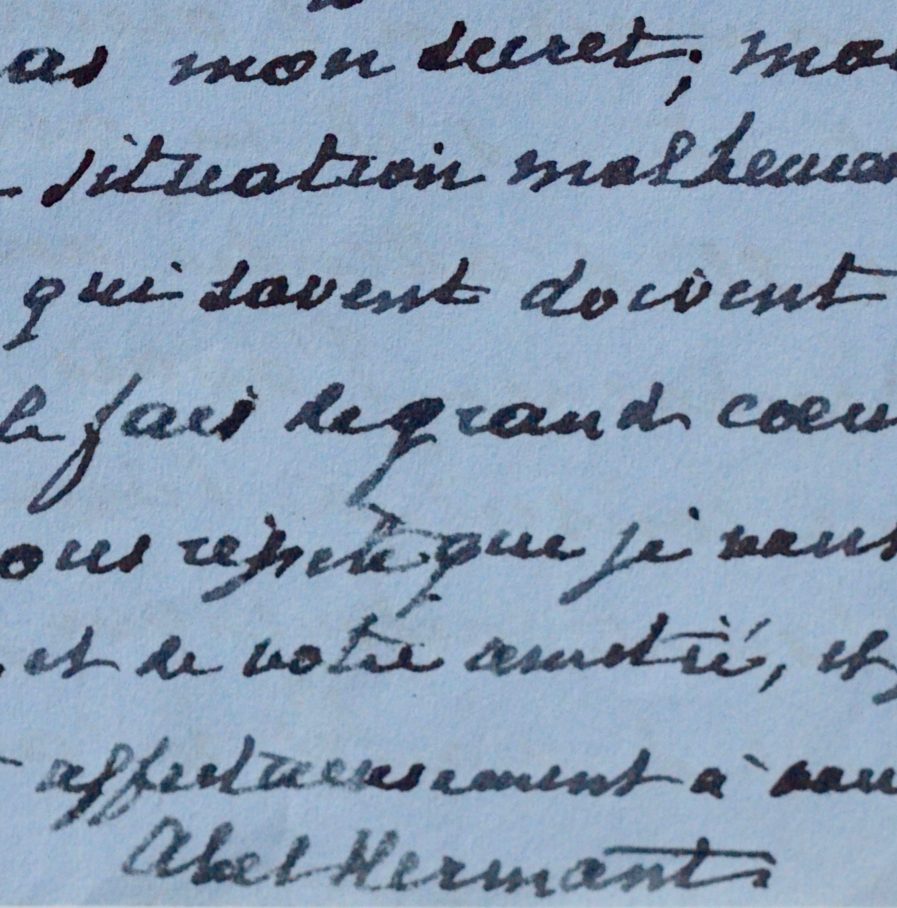 as mon secret; mai
situation malheureu
qui savent doivent
le fais de grand coeu
ous répète que je vous
, et de votre amitié, et
affectueusement à vou
Abel Hermant.